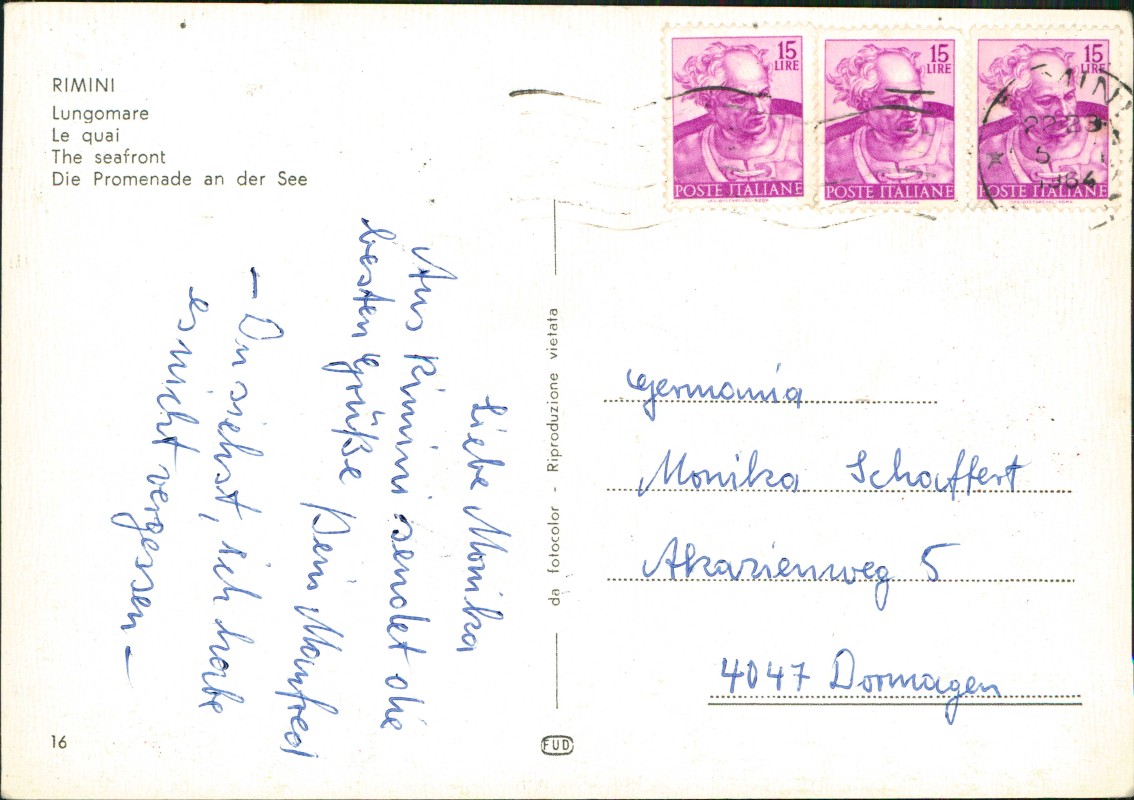 RIMINI
Lungomare
Le quai
The seafront
Die Promenade an der See
15
LIRE
POSTE ITALIANE
15
LIRE
POSTE ITALIANE
15
LIRE
POSTE ITALIANE
1964
Liebe Monika
Aus Rimini sendet die
besten Grüße
Dein Manfred
— Du siehst, ich habe
es nicht vergessen —
da fotocolor - Riproduzione vietata
Germania
Monika Schaffert
Akazienweg 5
4047 Dormagen
16
FUD